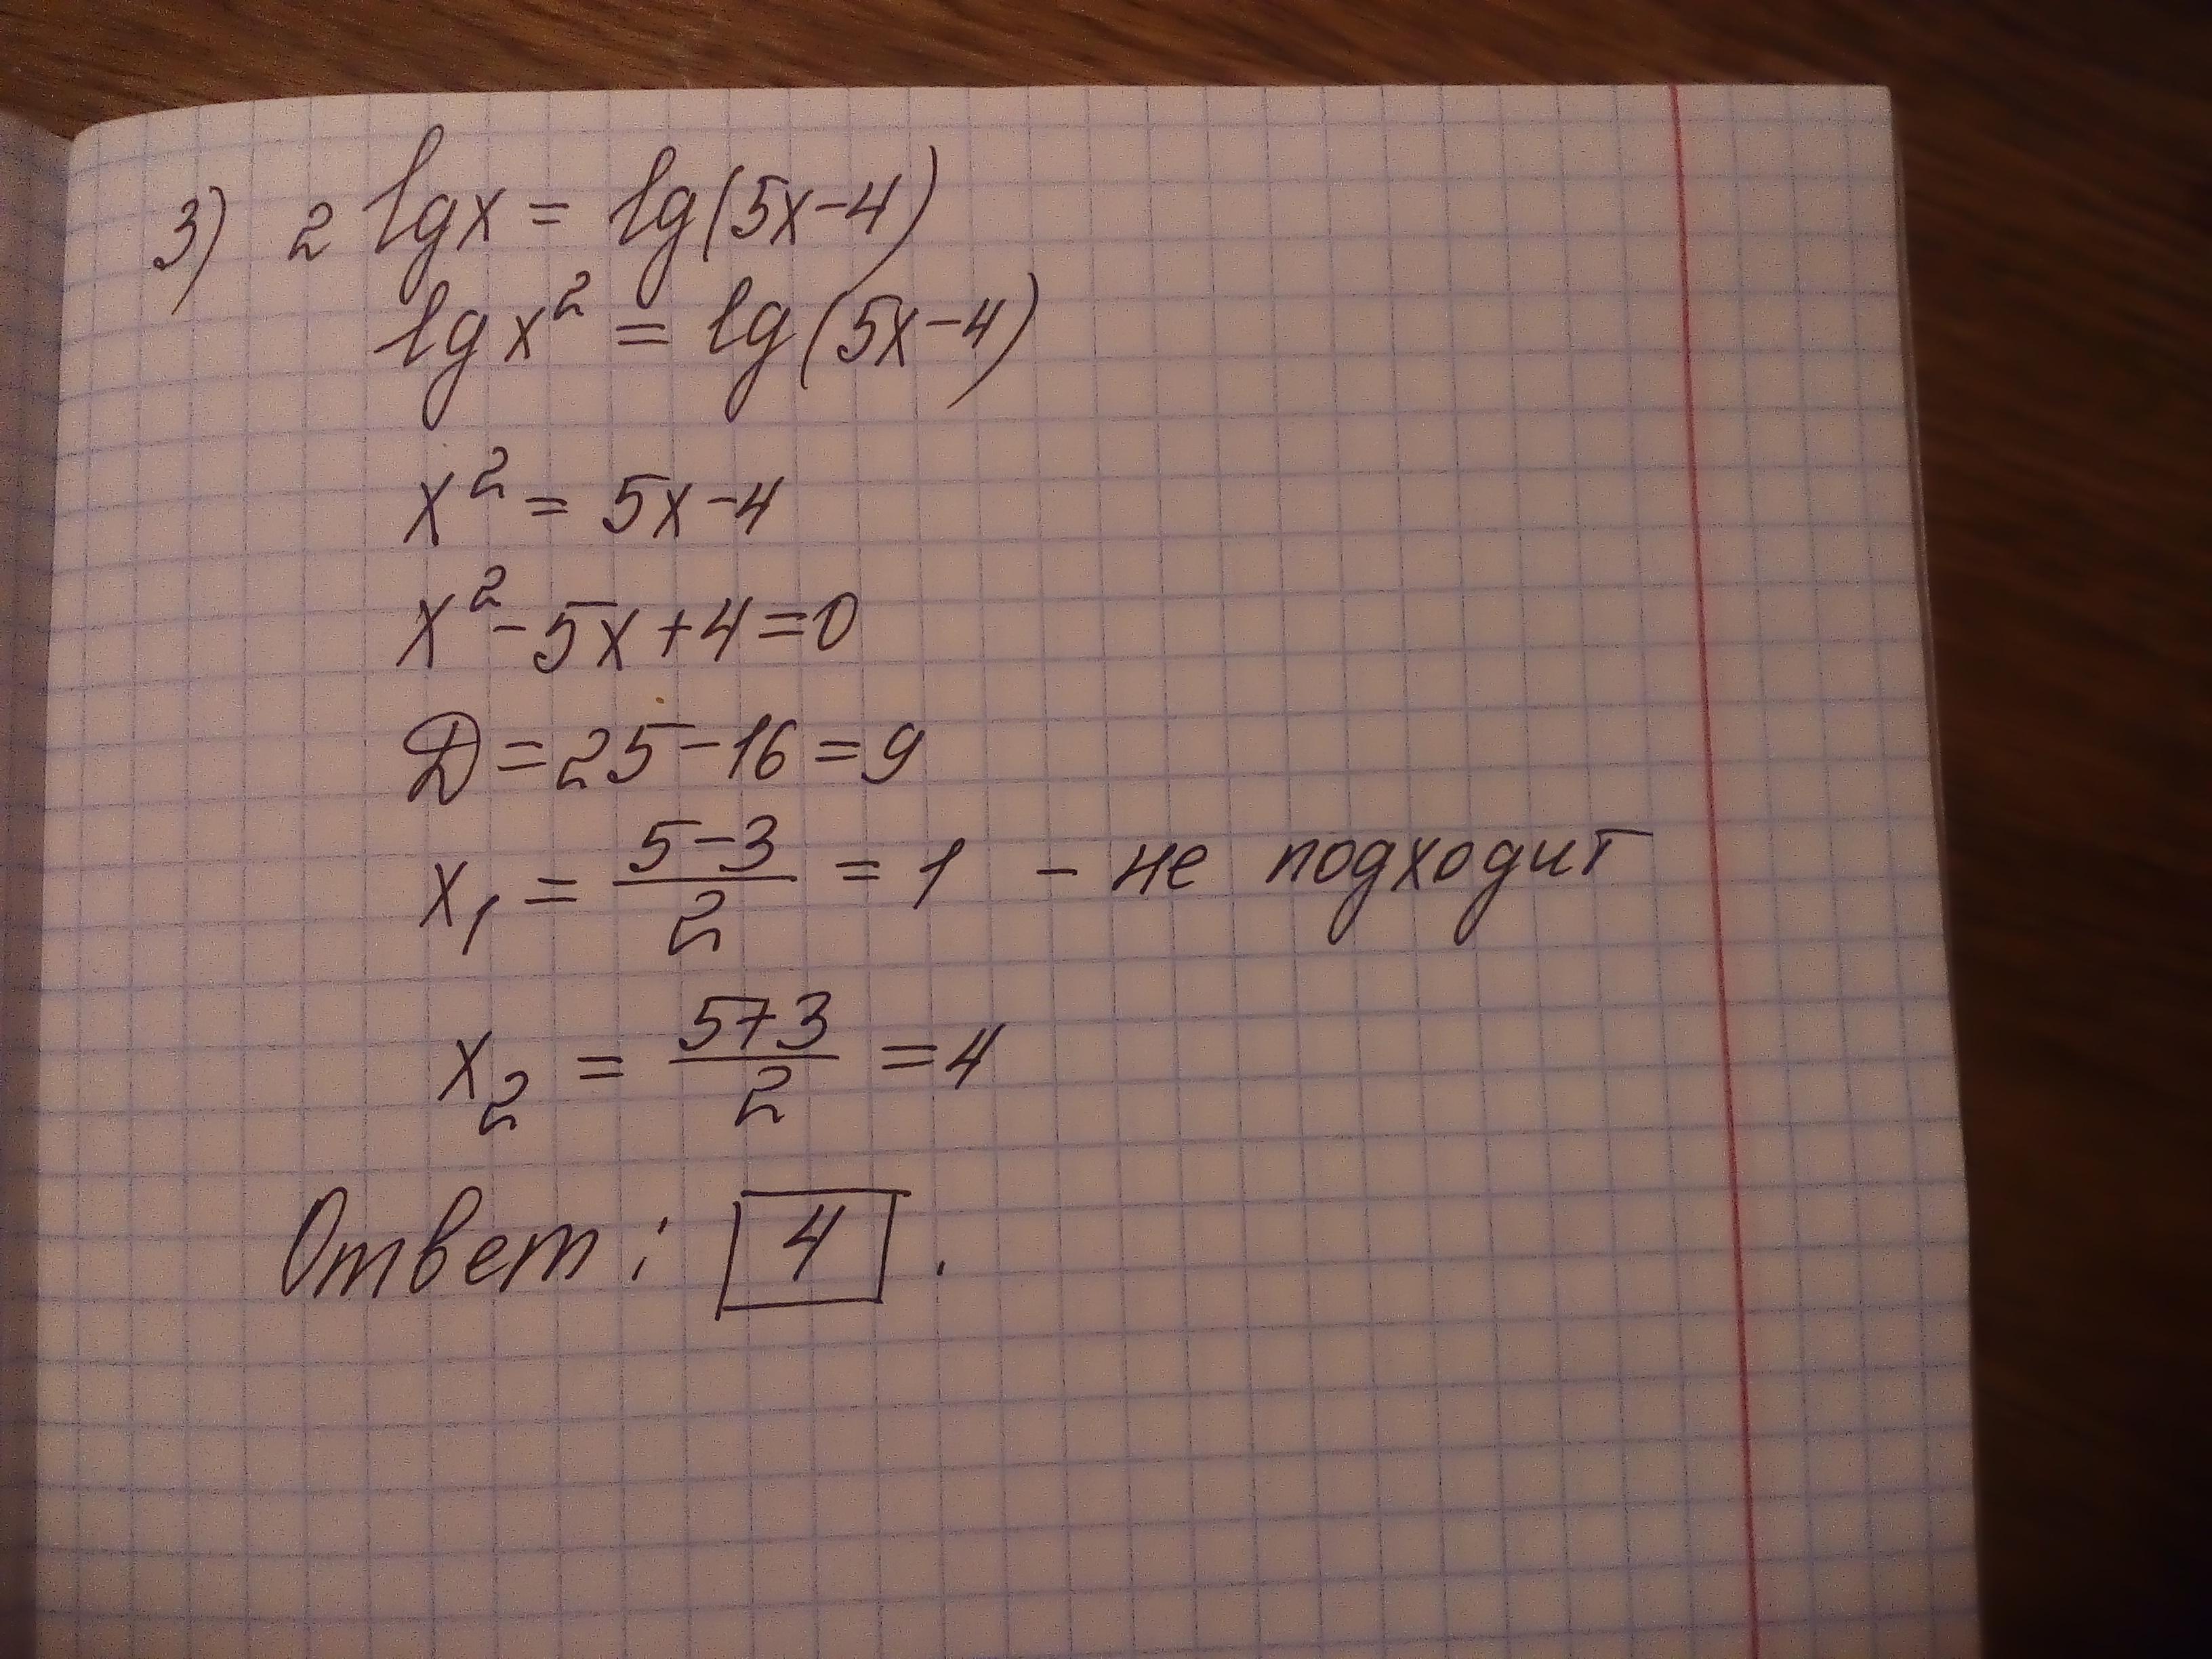 3) 2 lgx = lg(5x-4)
lgx² = lg(5x-4)
x² = 5x-4
x²-5x+4=0
D=25-16=9
x₁ = (5-3)/2 = 1 - не подходит
x₂ = (5+3)/2 =4
Ответ: 4.